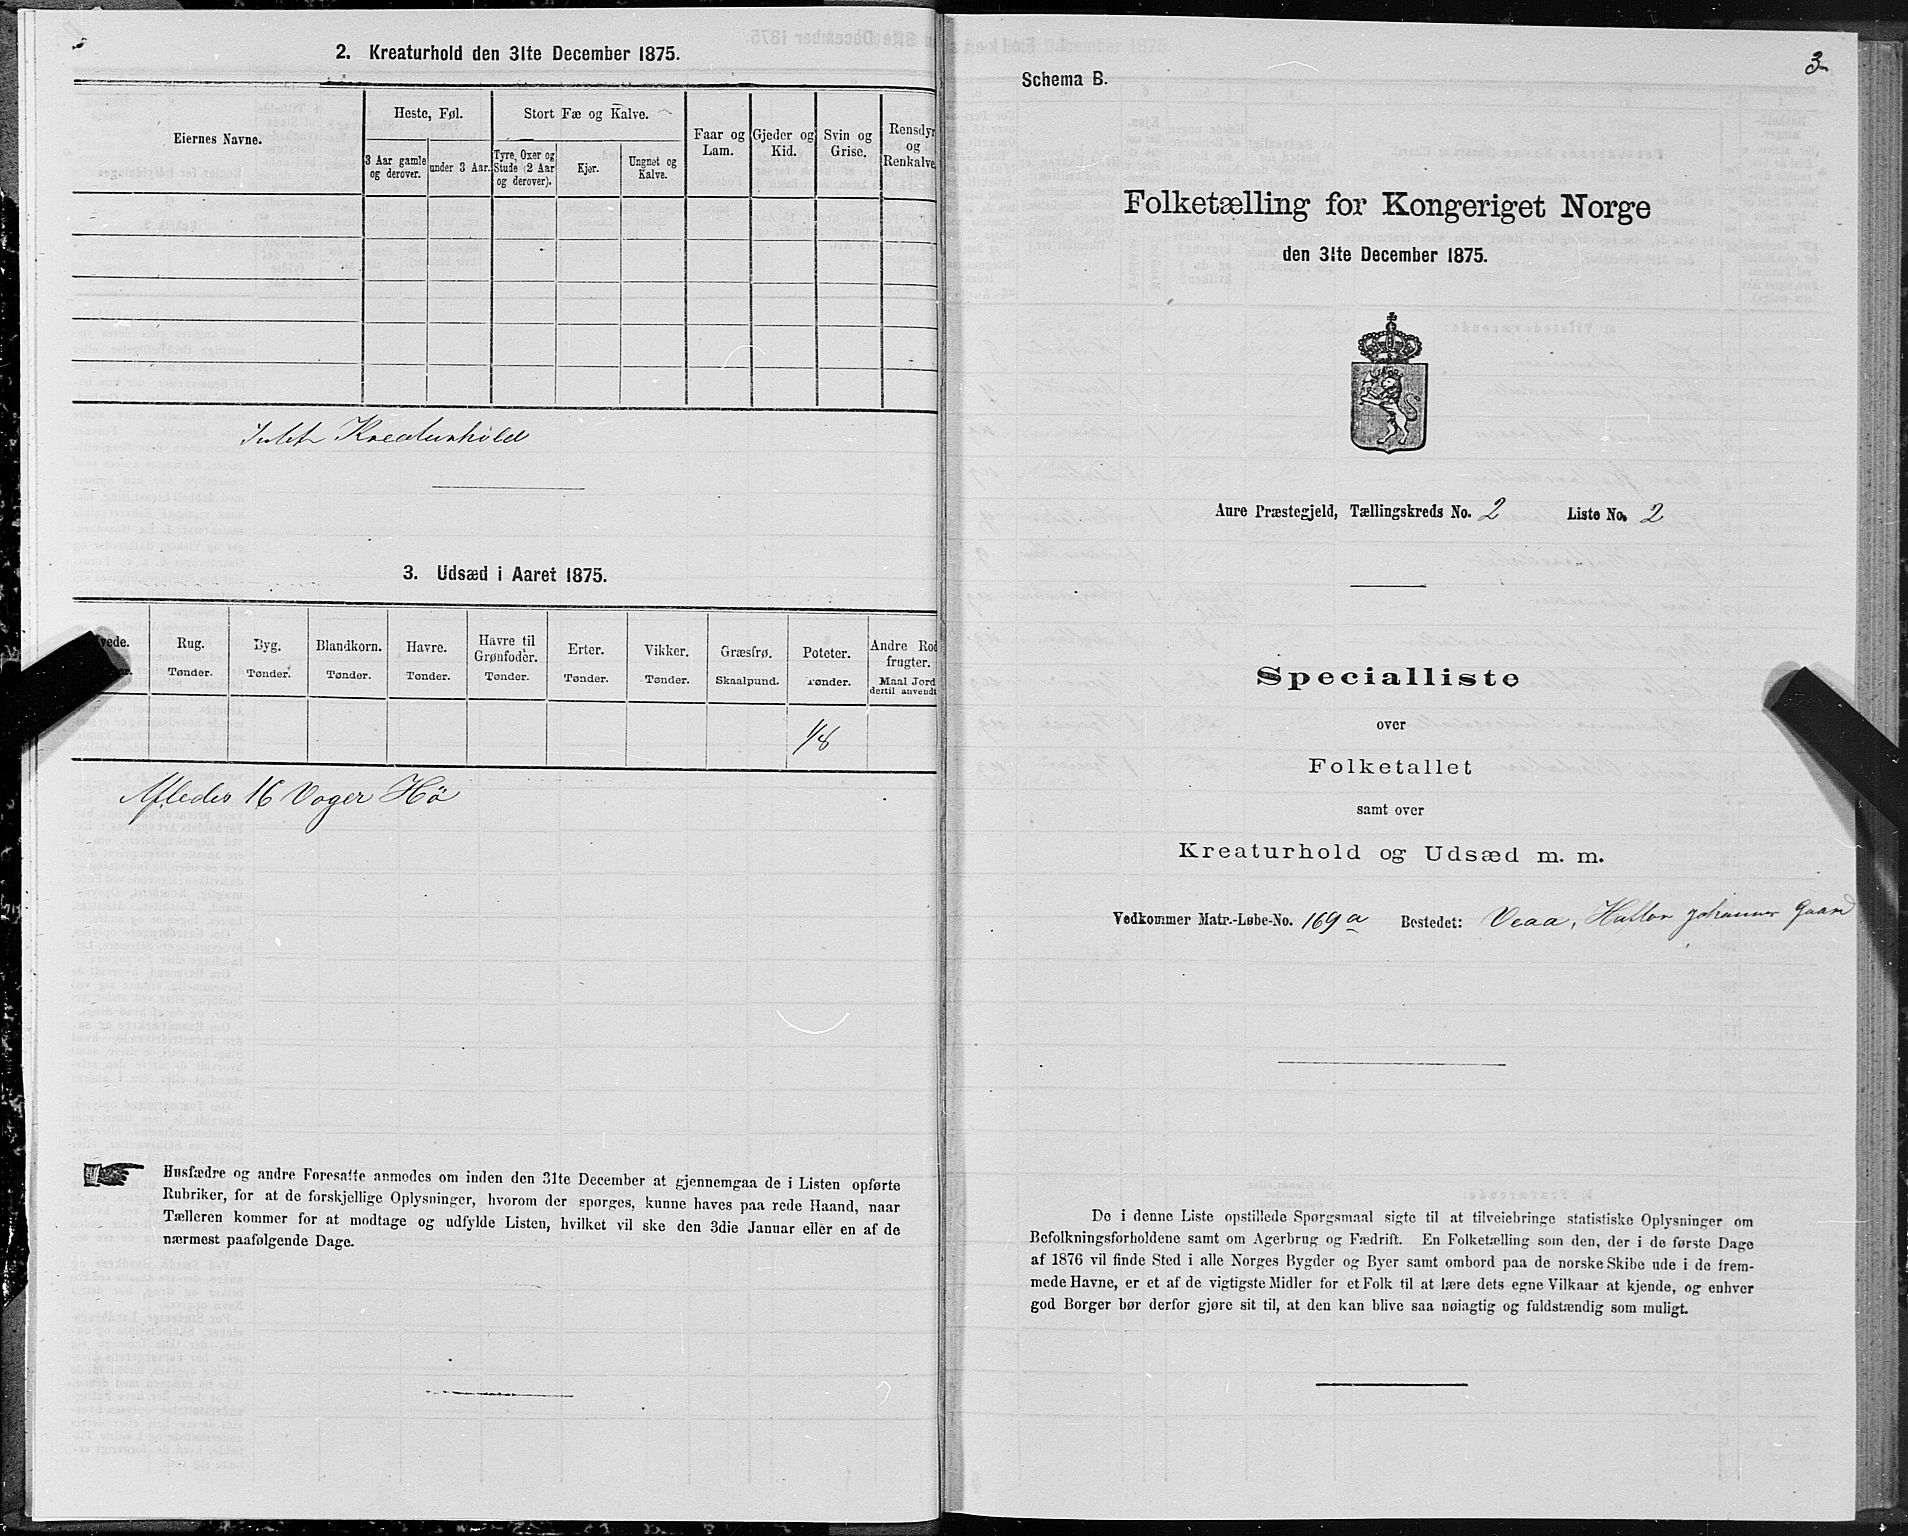 2. Kreaturhold den 31te December 1875.
Eiernes Navne.
Heste, Føl.
3 Aar gamle og derover.
under 3 Aar.
Stort Fæ og Kalve.
Tyre, Oxer og Stude (2 Aar og derover).
Kjør.
Ungnøt og Kalve.
Faar og Lam.
Gjeder og Kid.
Svin og Grise.
Rensdyr og Renkalve.
Intet Kreaturhold
3. Udsæd i Aaret 1875.
Rug. Tønder.
Byg. Tønder.
Blandkorn. Tønder.
Havre. Tønder.
Havre til Grønfoder. Tønder.
Erter. Tønder.
Vikker. Tønder.
Græsfrø. Skaalpund.
Poteter. Tønder.
Andre Rodfrugter. Maal Jord dertil anvendt
1/8
Afledes 16 Voger Hö
Husfædre og andre Foresatte anmodes om inden den 31te December at gjennemgaa de i Listen opførte
Rubriker, for at de forskjellige Oplysninger, hvorom der spørges, kunne haves paa rede Haand, naar
Tælleren kommer for at modtage og udfylde Listen, hvilket vil ske den 3die Januar eller en af de
nærmest paafølgende Dage.
3
Schema B.
Folketælling for Kongeriget Norge
den 31te December 1875.
Aure Præstegjeld, Tællingskreds No. 2 Liste No. 2
Specialliste
over
Folketallet
samt over
Kreaturhold og Udsæd m. m.
Vedkommer Matr.-Løbe-No. 169a Bestedet: Veaa, Johannes Gaard
De i denne Liste opstillede Spørgsmaal sigte til at tilveiebringe statistiske Oplysninger om
Befolkningsforholdene samt om Agerbrug og Fædrift. En Folketælling som den, der i de første Dage
af 1876 vil finde Sted i alle Norges Bygder og Byer samt ombord paa de norske Skibe ude i de frem-
mede Havne, er et af de vigtigste Midler for et Folk til at lære dets egne Vilkaar at kjende, og enhver
god Borger bør derfor gjøre sit til, at den kan blive saa nøiagtig og fuldstændig som muligt.